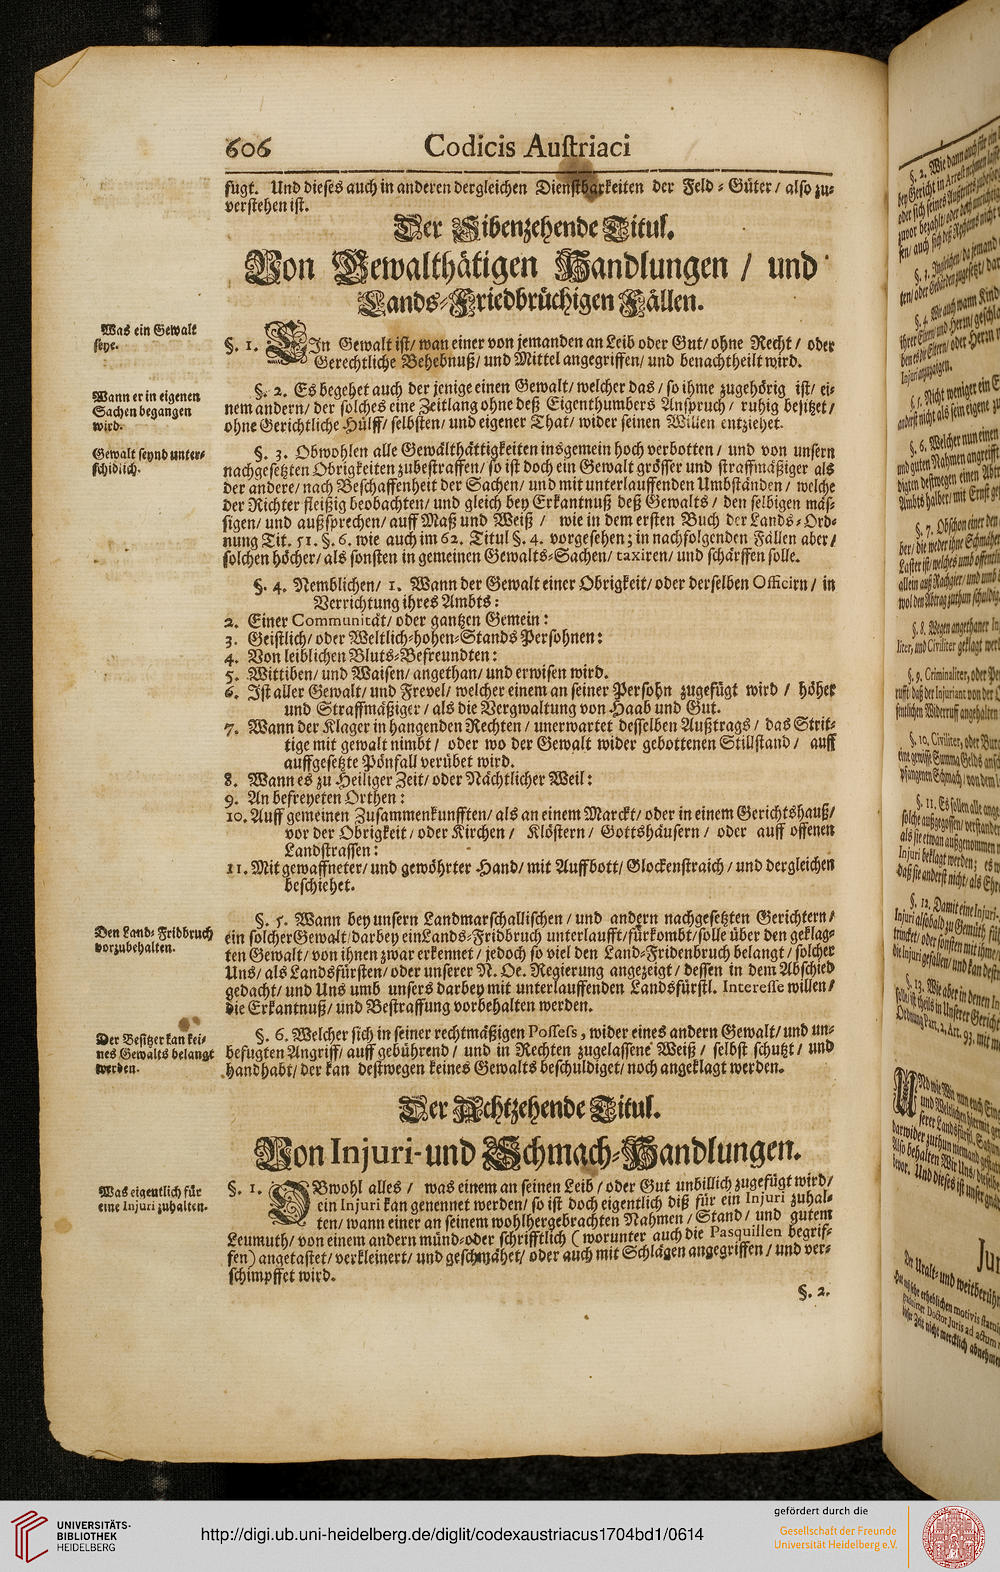 606 Codicis Auſtriaci
fugt. Und dieſes auch in anderen dergleichen Dienſtbarkeiten der Feld-Güter/ alſo zu-
verſtehen iſt.
Der Sibenzehende Titul.
Von Gewalthätigen Handlungen / und
Lands-Friedbrüchigen Fällen.
Was ein Gewalt
ſeye.
§. 1. EIn Gewalt iſt/ wan einer von jemanden an Leib oder Gut/ ohne Recht / oder
Gerechtliche Behebnuß/ und Mittel angegriffen/ und benachtheilt wird.
Wann er in eigenen
Sachen begangen
wird.
§. 2. Es begehet auch der jenige einen Gewalt/ welcher das / ſo ihme zugehörig iſt/ ei-
nem andern/ der ſolches eine Zeitlang ohne deß Eigenthumbers Anſpruch / ruhig beſitzet/
ohne Gerichtliche Hülff/ ſelbſten/ und eigener That/ wider ſeinen Willen entziehet.
Gewalt ſeynd unter-
ſchidlich.
§. 3. Obwohlen alle Gewälthättigkeiten insgemein hoch verbotten / und von unſern
nachgeſetzten Obrigkeiten zubeſtraffen/ ſo iſt doch ein Gewalt gröſſer und ſtraffmäßiger als
der andere/ nach Beſchaffenheit der Sachen/ und mit unterlauffenden Umbſtänden / welche
der Richter fleißig beobachten/ und gleich bey Erkantnuß deß Gewalts / den ſelbigen mäſ-
ſigen/ und außſprechen/ auff Maß und Weiß / wie in dem erſten Buch der Lands-Ord-
nung Tit. 51. §. 6. wie auch im 62. Titul §. 4. vorgeſehen; in nachfolgenden Fällen aber/
ſolchen höcher/ als ſonſten in gemeinen Gewalts-Sachen/ taxiren/ und ſchärffen ſolle.
§. 4. Nemblichen/ 1. Wann der Gewalt einer Obrigkeit/ oder derſelben Officirn / in
Verrichtung ihres Ambts:
2. Einer Communität/ oder gantzen Gemein:
3. Geiſtlich/ oder Weltlich-hohen-Stands Perſohnen:
4. Von leiblichen Bluts-Befreundten:
5. Wittiben/ und Waiſen/ angethan/ und erwiſen wird.
6. Iſt aller Gewalt/ und Frevel/ welcher einem an ſeiner Perſohn zugefügt wird / höher
und Straffmäßiger / als die Vergwaltung von Haab und Gut.
7. Wann der Klager in hangenden Rechten / unerwartet deſſelben Außtrags / das Strit-
tige mit gewalt nimbt / oder wo der Gewalt wider gebottenen Stillſtand / auff
auffgeſetzte Pönfall verübet wird.
8. Wann es zu Heiliger Zeit/ oder Nächtlicher Weil:
9. An befreyeten Orthen:
10. Auff gemeinen Zuſammenkunfften/ als an einem Marckt/ oder in einem Gerichtshauß/
vor der Obrigkeit / oder Kirchen / Klöſtern / Gottshäuſern / oder auff offenen
Landſtraſſen:
11. Mit gewaffneter/ und gewöhrter Hand/ mit Auffbott/ Glockenſtraich / und dergleichen
beſchiehet.
Den Land-Fridbruch
vorzubehalten.
§. 5. Wann bey unſern Landmarſchalliſchen / und andern nachgeſetzten Gerichtern/
ein ſolcher Gewalt/ darbey ein Lands-Fridbruch unterlaufft/ fürkombt/ ſolle über den geklag-
ten Gewalt/ von ihnen zwar erkennet / jedoch ſo viel den Land-Fridenbruch belangt / ſolcher
Uns/ als Landsfürſten/ oder unſerer N. Oe. Regierung angezeigt / deſſen in dem Abſchied
gedacht/ und Uns umb unſers darbey mit unterlauffenden Landsfürſtl. Intereſſe willen/
die Erkantnuß/ und Beſtraffung vorbehalten werden.
Der Beſitzer kan kei-
nes Gewalts belangt
werden.
§. 6. Welcher ſich in ſeiner rechtmäßigen Poſſeſs, wider eines andern Gewalt/ und un-
befugten Angriff/ auff gebührend / und in Rechten zugelaſſene Weiß / ſelbſt ſchutzt / und
handhabt/ der kan deſtwegen keines Gewalts beſchuldiget/ noch angeklagt werden.
Der Achtzehende Titul.
Von Injuri- und Schmach-Handlungen.
Was eigentlich für
eine Injuri zuhalten.
§. 1. OBwohl alles / was einem an ſeinen Leib / oder Gut unbillich zugefügt wird/
ein Injuri kan genennet werden/ ſo iſt doch eigentlich diß für ein Injuri zuhal-
ten/ wann einer an ſeinem wohlhergebrachten Nahmen / Stand / und gutem
Leumuth/ von einem andern münd-oder ſchrifftlich ( worunter auch die Pasquillen begrif-
fen) angetaſtet/ verkleinert/ und geſchmähet/ oder auch mit Schlägen angegriffen / und ver-
ſchimpffet wird.
§. 2.
UNIVERSITÄTS-
BIBLIOTHEK
HEIDELBERG
http://digi.ub.uni-heidelberg.de/diglit/codexaustriacus1704bd1/0614
gefördert durch die
Gesellschaft der Freunde
Universität Heidelberg e.V.